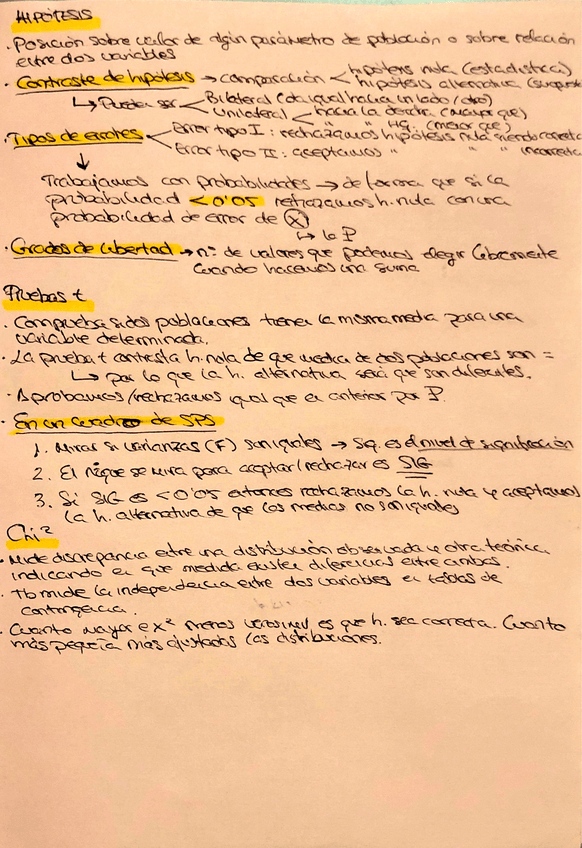 HIPÓTESIS
· Posición sobre valor de algún parámetro de población o sobre relación
entre dos variables
· Contraste de hipótesis → comparación < hipótesis nula (estadística)
hipótesis alternativa
↳ Pueden ser < Bilateral (da igual hacia un lado / otro)
Unilateral < hacia la derecha (mayor que)
" " izq. (menor que)
· Tipos de errores < Error tipo I: rechazamos hipótesis nula siendo correcta
Error tipo II: aceptamos " " " incorrecta
↓
Trabajamos con probabilidades → de forma que si la
probabilidad < 0'05 rechazamos h. nula con una
probabilidad de error de X
↳ la P
· Grados de libertad → nº de valores que podemos elegir libremente
cuando hacemos una suma
Pruebas t
· Comprueba si dos poblaciones tienen la misma media para una
variable determinada.
· La prueba t contrasta h. nula de que media de dos poblaciones son =
↳ por lo que la h. alternativa será que son diferentes.
· Aprobamos/rechazamos igual que en anterior por P.
· En un cuadro de SPS
1. Mirar si varianzas (F) son iguales → Sg. es el nivel de significación
2. El que se mira para aceptar/rechazar es SIG
3. Si SIG es < 0'05 entonces rechazamos la h. nula y aceptamos
la h. alternativa de que las medias no son iguales
Chi²
· Mide discrepancia entre una distribución observada y otra teórica,
indicando en que medida existen diferencias entre ambas.
· Tb mide la independencia entre dos variables en tablas de
contingencia.
· Cuanto mayor e x² menos verosímil es que h. sea correcta. Cuanto
más pequña más ajustadas las distribuciones.